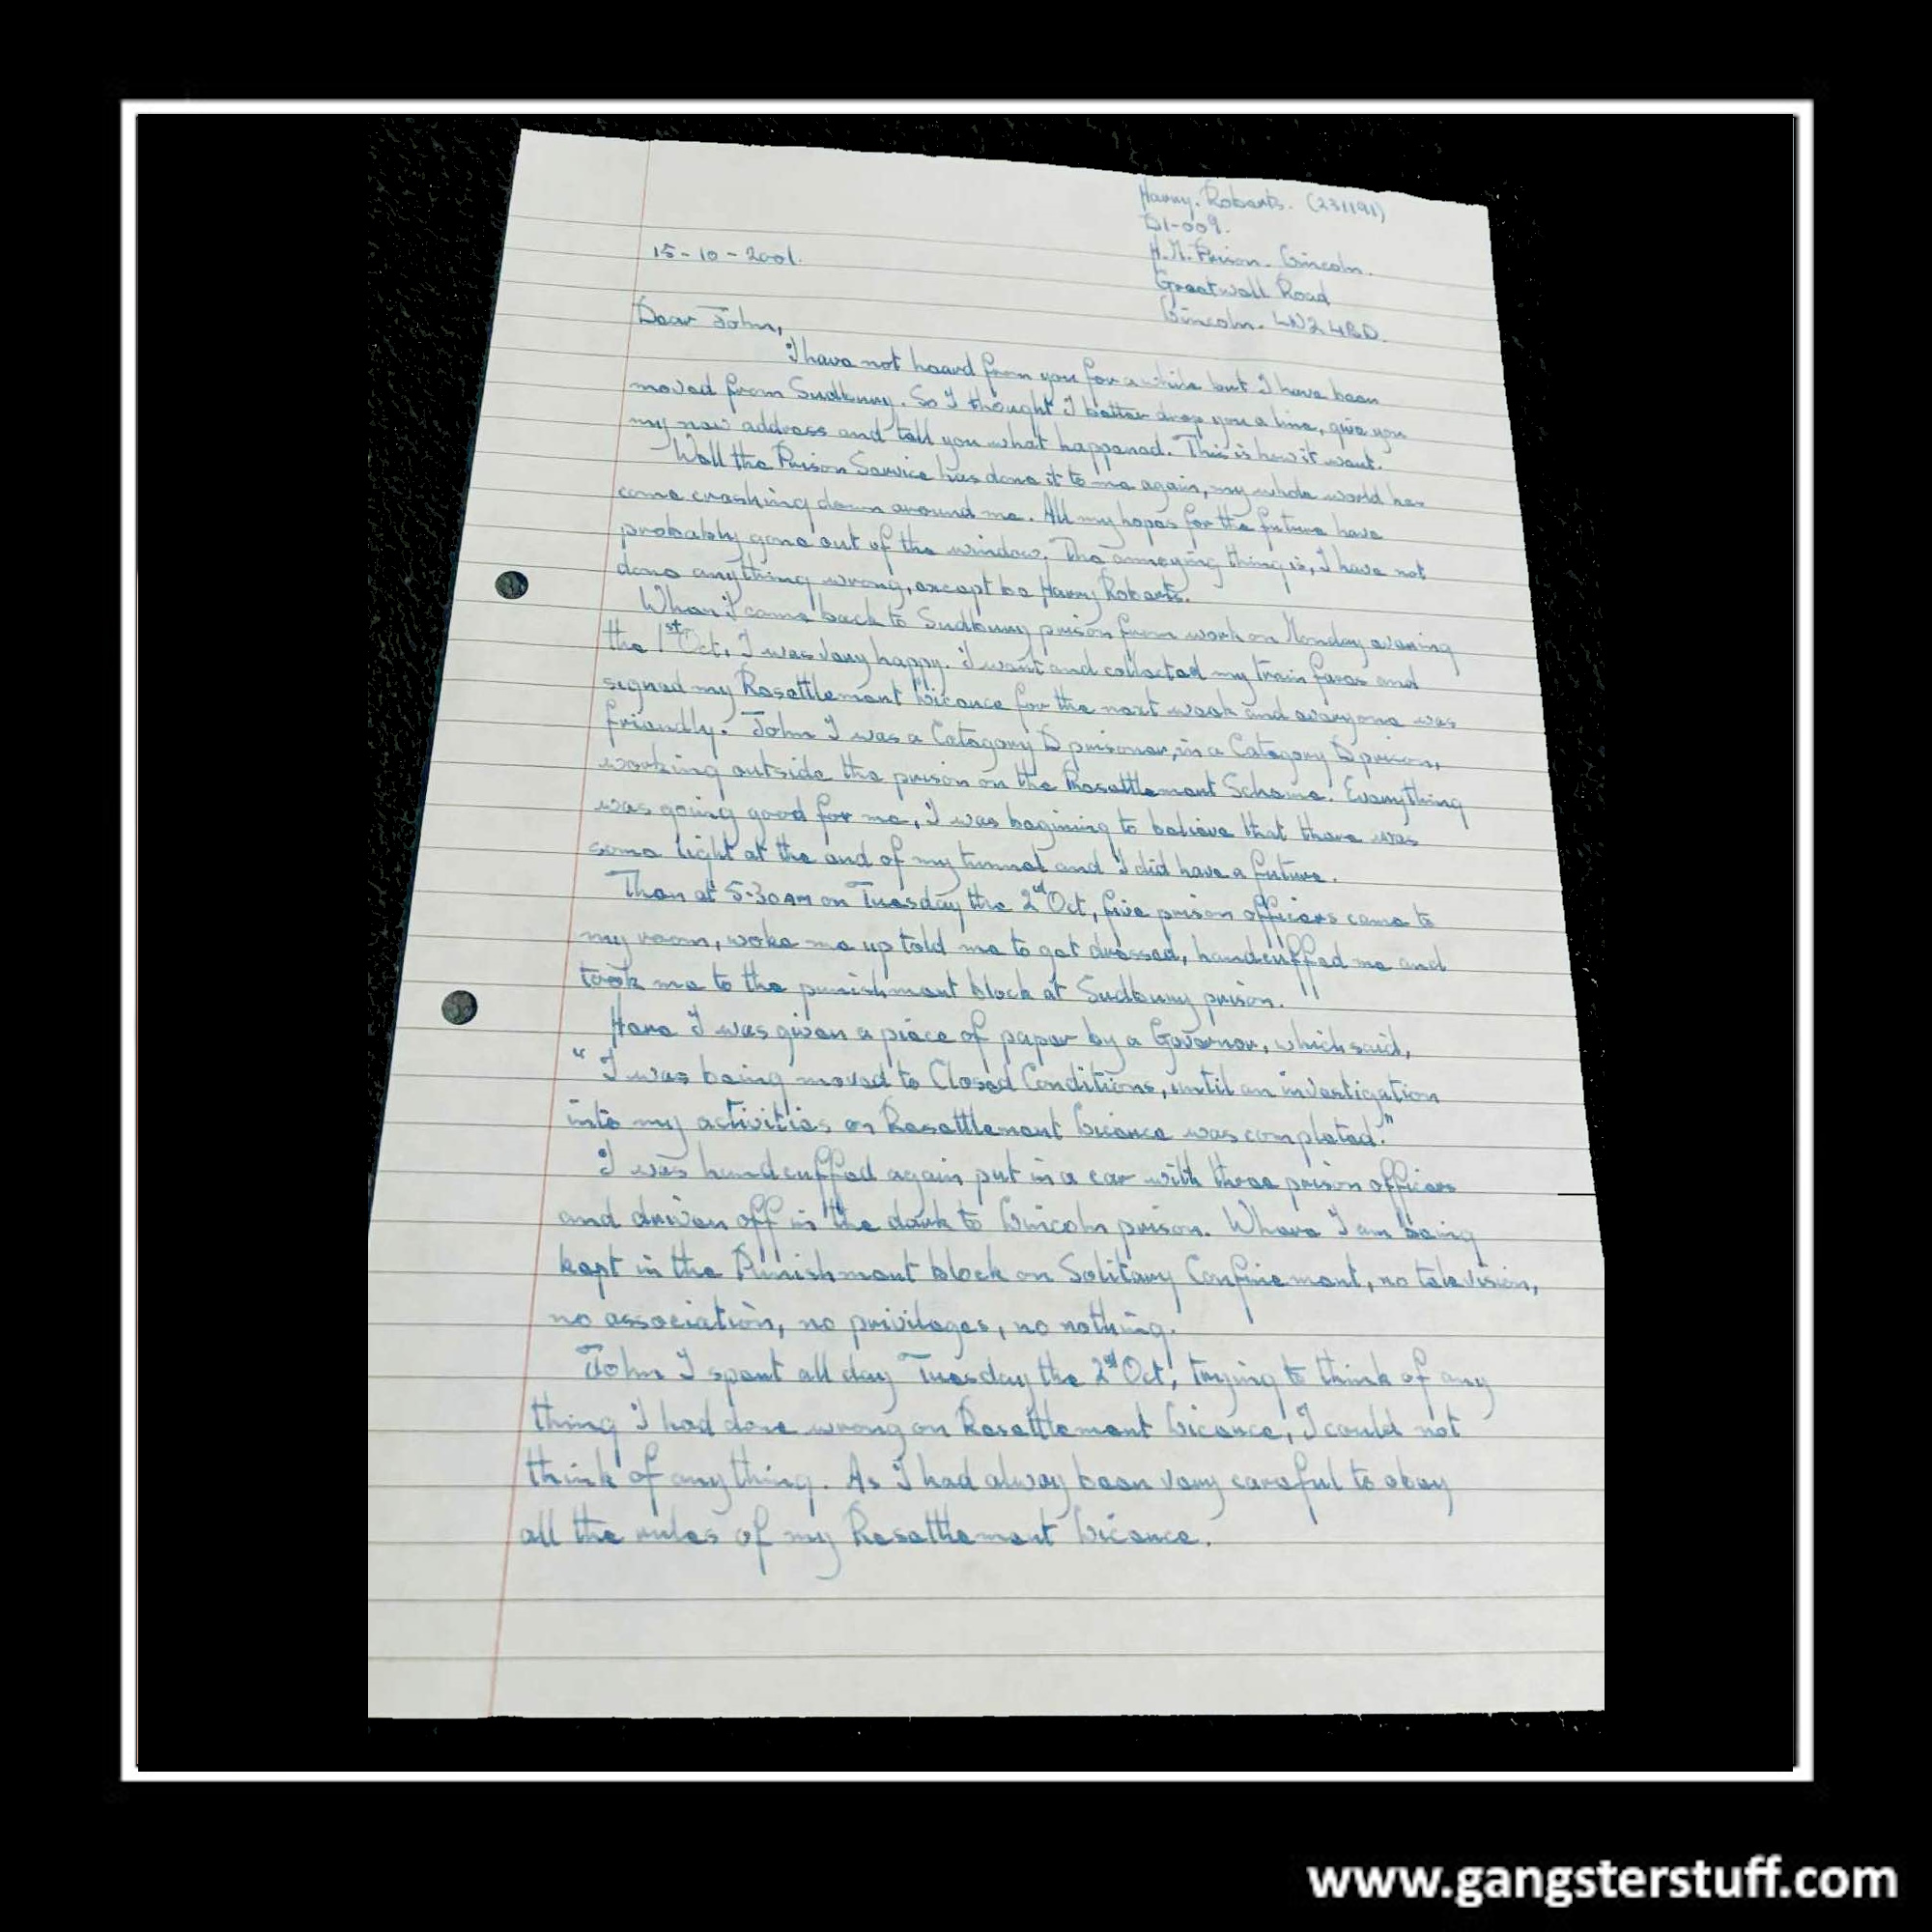 Harry. Roberts. (231191)
D1-009.
H.M. Prison. Lincoln.
Greetwell Road
Lincoln. LN2 4BD.
15-10-2001.
Dear John,
I have not heard from you for a while but I have been
moved from Sudbury. So I thought I better drop you a line, give you
my new address and tell you what happened. This is how it went.
Well the Prison Service has done it to me again, my whole world has
come crashing down around me. All my hopes for the future have
probably gone out of the window. The annoying thing is, I have not
done anything wrong, except be Harry Roberts.
When I came back to Sudbury prison from work on Monday evening
the 1st Oct, I was very happy. I went and collected my train fares and
signed my Resettlement Licence for the next week and everyone was
friendly. John I was a Category D prisoner, in a Category D prison,
working outside the prison on the Resettlement Scheme. Everything
was going good for me, I was begining to believe that there was
some light at the end of my tunnel and I did have a future.
Then at 5.30AM on Tuesday the 2nd Oct, five prison officers came to
my room, woke me up told me to get dressed, handcuffed me and
took me to the punishment block at Sudbury prison.
Here I was given a piece of paper by a Governor, which said,
"I was being moved to Closed Conditions, until an investigation
into my activities on Resettlement Licence was completed."
I was handcuffed again put in a car with three prison officers
and driven off in the dark to Lincoln prison. Where I am being
kept in the Punishment block on Solitary Confinement, no television,
no association, no privileges, no nothing.
John I spent all day Tuesday the 2nd Oct, trying to think of any
thing I had done wrong on Resettlement Licence, I could not
think of anything. As I had alway been very careful to obey
all the rules of my Resettlement Licence.
www.gangsterstuff.com